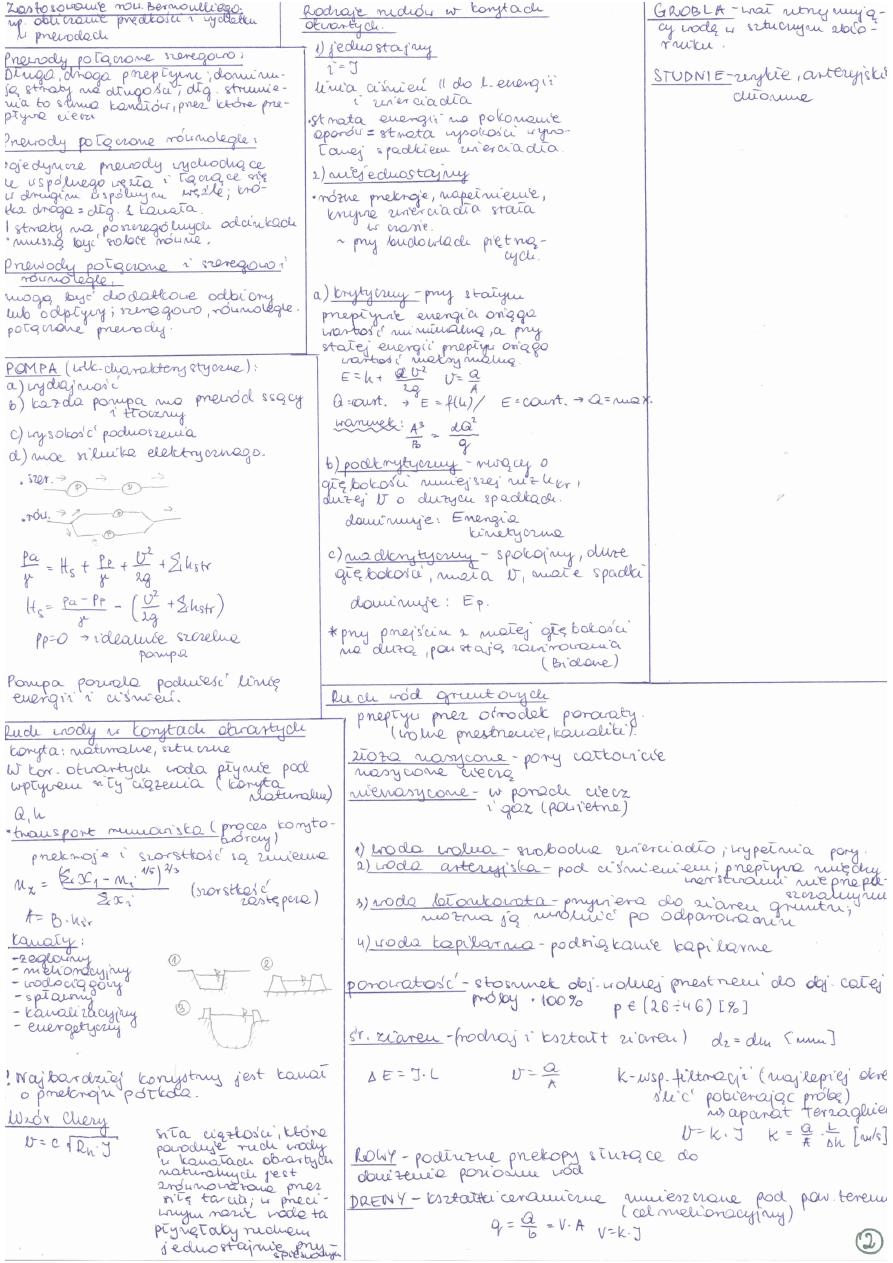 Zastosowanie rów. Bernoulliego:
np. obliczanie prędkości i wydatku
w przewodach
Przewody połączone szeregowo:
Długa, droga przepływu; dominu-
ją straty na długości; dłg. strumie-
nia to suma kanałów, przez które prze-
pływa ciecz
Przewody połączone równolegle:
pojedyncze przewody wychodzące
ze wspólnego węzła i łączące się
w drugim wspólnym węźle; kró-
tka droga = dłg. 1 kanału.
! straty na poszczególnych odcinkach
muszą być sobie równe.
Przewody połączone i szeregowo i
równolegle.
mogą być dodatkowe odbiory
lub odpływy; szeregowo, równolegle.
połączone przewody.
POMPA (wlk. charakterystyczne):
a) wydajność
b) każda pompa ma przewód ssący
i tłoczny
c) wysokość podnoszenia
d) moc silnika elektrycznego.
• szer.
• rów.
pa/γ = Hs + pp/γ + U²/2g + Σhstr
Hs = (pa - pp)/γ - (U²/2g + Σhstr)
pp=0 → idealnie szczelna
pompa
Pompa pozwala podnieść linię
energii i ciśnień.
Ruch wody w korytach otwartych
koryta: naturalne, sztuczne
W kor. otwartych woda płynie pod
wpływem siły ciążenia (koryta
naturalne)
Q, h
• transport rumowiska (proces koryto-
twórczy)
przekroje i szorstkość są zmienne
nz = (Σ xi - ni^1/5)^2/3 / Σxi (szorstkość
zastępcza)
A = B·hśr
kanały:
- żeglowny
- melioracyjny
- wodociągowy
- spławny
- kanalizacyjny
- energetyczny
1
2
3
! Najbardziej korzystny jest kanał
o przekroju półkola.
Wzór Chezy
U = c √Rh·J
siła ciężkości, która
powoduje ruch wody
w kanałach otwartych
naturalnych jest
zrównoważona przez
siłę tarcia; w przeci-
wnym razie woda ta
płynęłaby ruchem
jednostajnie przy-
spieszonym
Rodzaje ruchów w korytach
otwartych.
1) jednostajny
i = J
linia ciśnień || do l. energii
i zwierciadła
• strata energii na pokonanie
oporów = strata wysokości wywo-
łanej spadkiem zwierciadła.
2) niejednostajny
• różne przekroje, napełnienie,
krzywa zwierciadła stała
w czasie.
~ przy budowlach piętrzą-
cych.
a) krytyczny - przy stałym
przepływie energia osiąga
wartość minimalną, a przy
stałej energii przepływ osiąga
wartość maksymalną.
E = h + αU²/2g U = Q/A
Q = const. → E = f(h) / E = const. → Q = max.
warunek: A³/B = αQ²/g
b) podkrytyczny - rwący o
głębokości mniejszej niż hkr,
dużej U o dużych spadkach.
dominuje: Energia
kinetyczna
c) nadkrytyczny - spokojny, duże
głębokości, mała U, małe spadki
dominuje: Ep.
* przy przejściu z małej głębokości
na dużą, powstają zawirowania
(Bidone)
GROBLA - wał utrzymują-
cy wodę w sztucznym zbio-
rniku.
STUDNIE - zwykłe, artezyjskie
chłonne
Ruch wód gruntowych
przepływ przez ośrodek porowaty.
(wolne przestrzenie, kanaliki).
złoża nasycone - pory całkowicie
nasycone cieczą
nienasycone - w porach ciecz
i gaz (powietrze)
1) woda wolna - swobodne zwierciadło; wypełnia pory.
2) woda artezyjska - pod ciśnieniem; przepływa między
warstwami nieprzepu-
szczalnymi
3) woda błonkowata - przywiera do ziaren gruntu;
można ją uwolnić po odparowaniu
4) woda kapilarna - podsiąkanie kapilarne
porowatość - stosunek obj. wolnej przestrzeni do obj. całej
próby · 100% p ∈ (26÷46) [%]
śr. ziaren - (rodzaj i kształt ziaren) dz = dm [mm]
ΔE = J·L U = Q/A k - wsp. filtracji (najlepiej okre-
ślić pobierając próbę)
aparat Terzaghiego
U = k·J k = Q/A · L/Δh [m/s]
ROWY - podłużne przekopy służące do
obniżenia poziomu wód
DRENY - kształtki ceramiczne umieszczone pod pow. terenu
(cel melioracyjny)
q = Q/b = V·A V = k·J
2